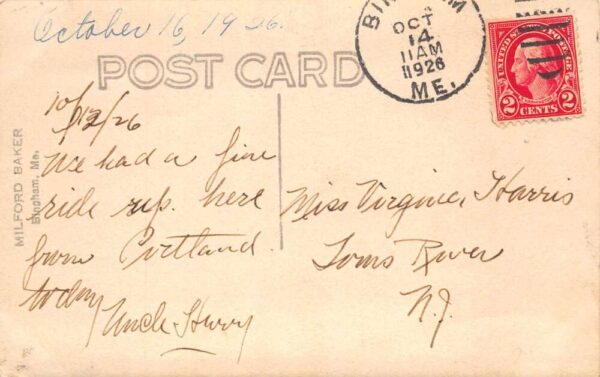 October 16, 1926.
POST CARD
BINGHAM
OCT
14
11 AM
1926
ME.
UNITED STATES POSTAGE
2 CENTS 2
MILFORD BAKER
Bingham, Me.
10/12/26
We had a fine
ride up here
from Portland
today
Uncle Harry
Miss Virginia Harris
Toms River
N.J.